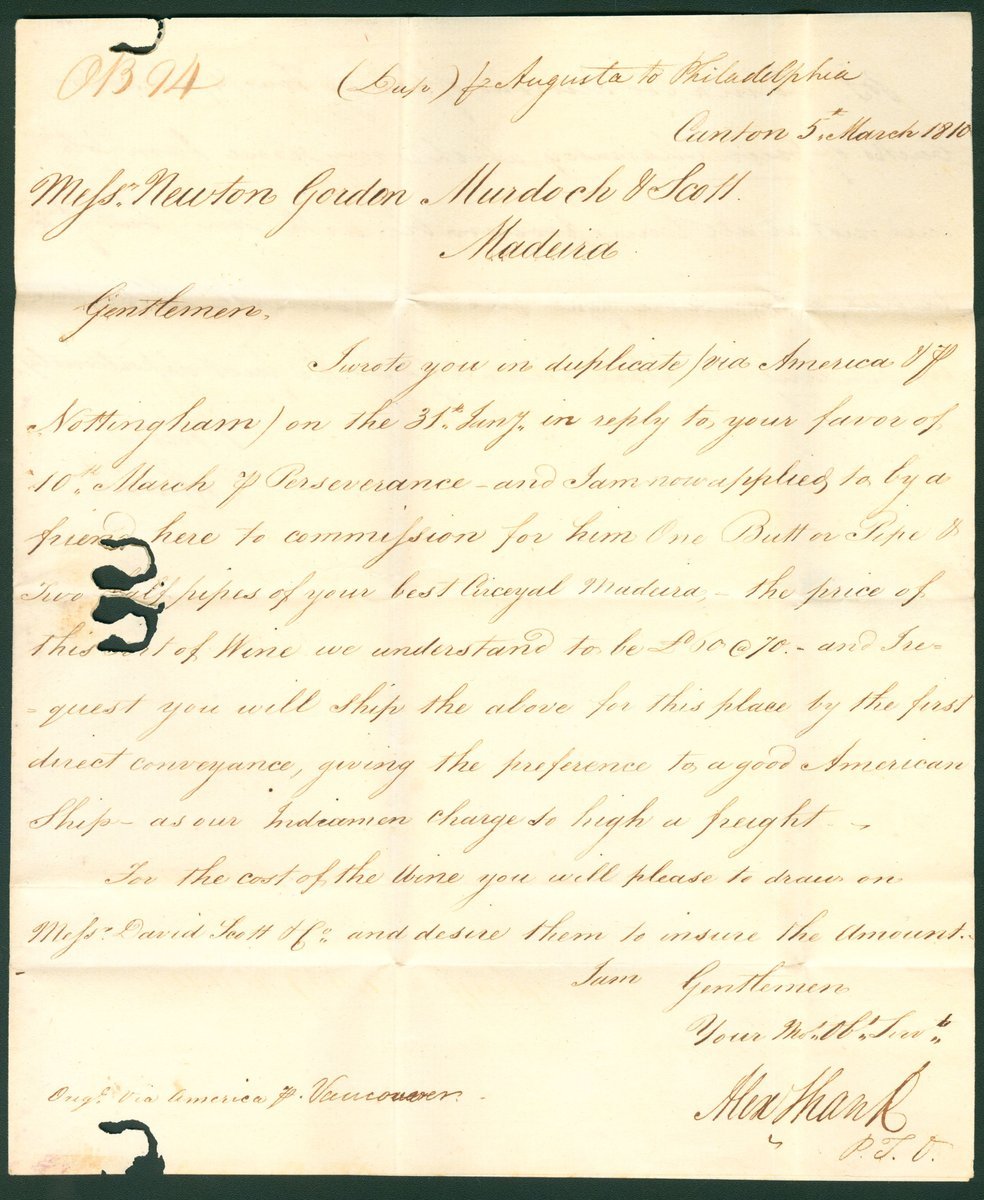 OB 94
(Dup) ⅌ Augusta to Philadelphia
Canton 5th March 1810
Messrs. Newton Gordon Murdoch & Scott.
Madeira
Gentlemen,
I wrote you in duplicate (via America & ⅌
Nottingham) on the 31st Jany. in reply to your favor of
10th March ⅌ Perseverance - and I am now applied to by a
friend here to commission for him One Butt or Pipe &
Two pipes of your best Madeira, - the price of
this of Wine we understand to be @ 70. - and I re=
=quest you will ship the above for this place by the first
direct conveyance, giving the preference to a good American
Ship - as our Indiamen charge so high a freight -
For the cost of the Wine you will please to draw on
Messrs. David Scott & Co. and desire them to insure the Amount. -
I am Gentlemen
Your Mot. Obt. Servt.
Alex Shank
Origl. via America ⅌ Vancouver -
P.T.O.